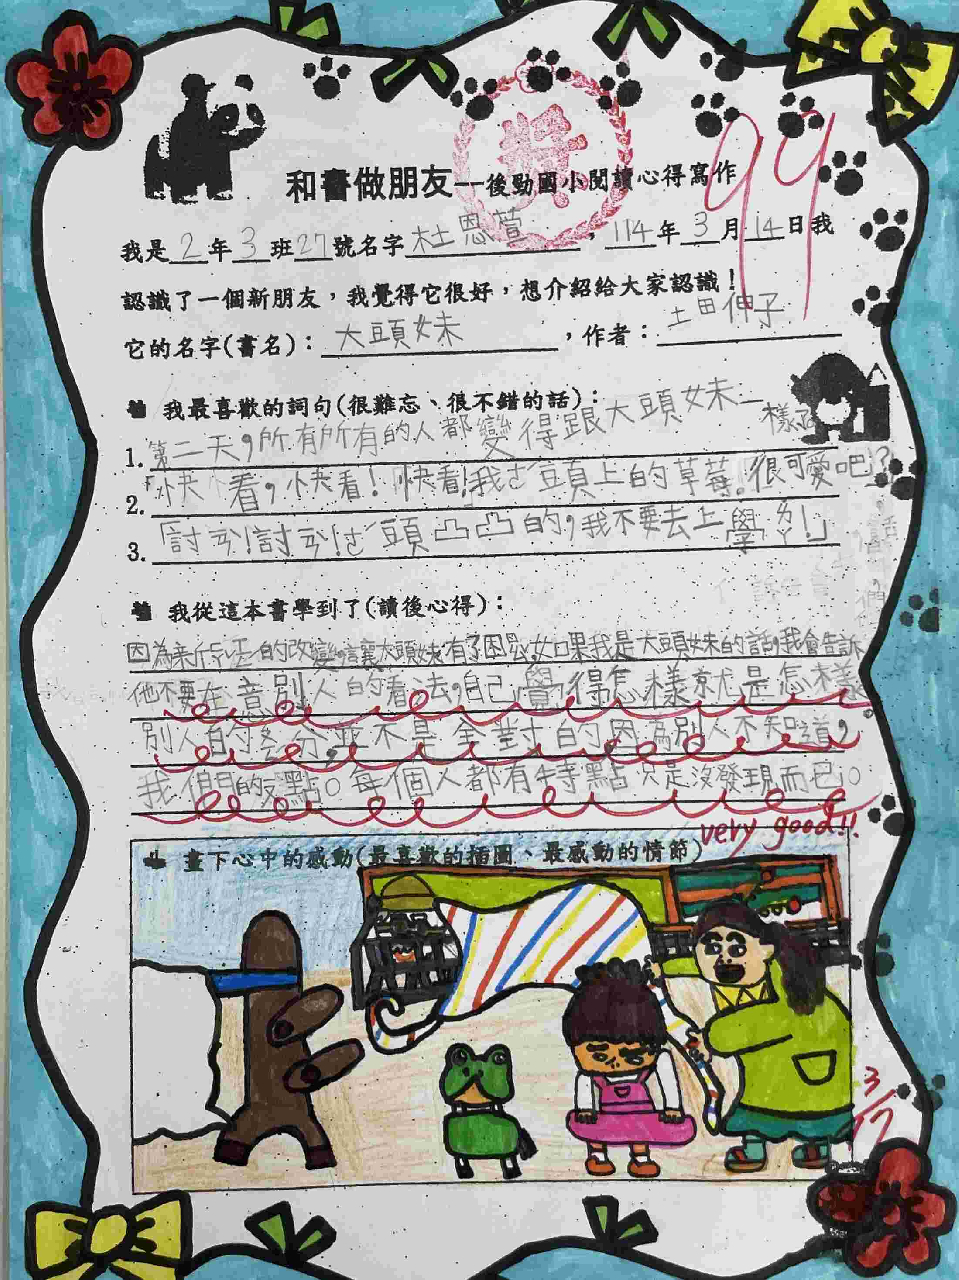 獎
99
和書做朋友—後勁國小閱讀心得寫作
我是2年3班27號名字杜恩萱，114年3月14日我
認識了一個新朋友，我覺得它很好，想介紹給大家認識！
它的名字(書名)：大頭妹，作者：土田伸子
我最喜歡的詞句(很難忘、很不錯的話)：
1.第二天，所有所有的人都變得跟大頭妹一樣
2.「快看，快看！快看！我ㄉㄜ˙頭上的草莓。很可愛吧？
3.「討ㄞˊ！討ㄞˊ！ㄉㄜ˙頭凸凸的，我不要去上學ㄌㄚ！」
我從這本書學到了(讀後心得)：
因為新 的改變，讓大頭妹有了困惑，如果我是大頭妹的話，我會告訴
他不要在意別人的看法，自己覺得怎樣就是怎樣
別人的 並不是全對的，因為別人不知道，
我們的 點。每個人都有特點只是沒發現而已。
very good!!
畫下心中的感動(最喜歡的插圖、最感動的情節)
3/17